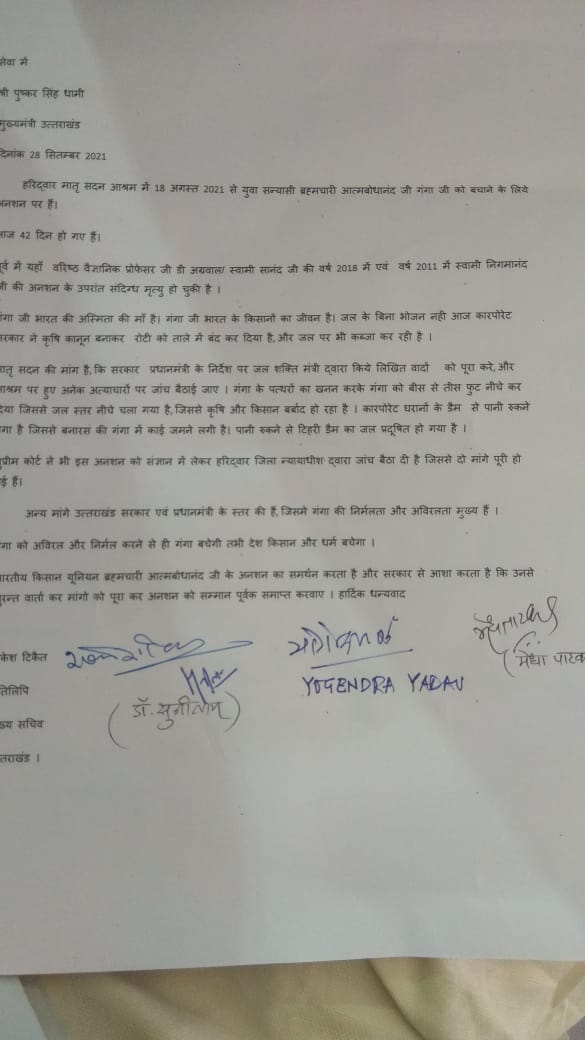 सेवा में
श्री पुष्कर सिंह धामी
मुख्यमंत्री उत्तराखंड
दिनांक 28 सितम्बर 2021
हरिद्वार मातृ सदन आश्रम में 18 अगस्त 2021 से युवा सन्यासी ब्रह्मचारी आत्मबोधानंद जी गंगा जी को बचाने के लिये
अनशन पर हैं।
आज 42 दिन हो गए हैं।
पूर्व में यहाँ वरिष्ठ वैज्ञानिक प्रोफेसर जी डी अग्रवाल/ स्वामी सानंद जी की वर्ष 2018 में एवं वर्ष 2011 में स्वामी निगमानंद
जी की अनशन के उपरांत संदिग्ध मृत्यु हो चुकी है ।
गंगा जी भारत की अस्मिता की माँ है। गंगा जी भारत के किसानों का जीवन है। जल के बिना भोजन नही आज कारपोरेट
सरकार ने कृषि कानून बनाकर रोटी को ताले में बंद कर दिया है,और जल पर भी कब्जा कर रही है ।
मातृ सदन की मांग है,कि सरकार प्रधानमंत्री के निर्देश पर जल शक्ति मंत्री द्वारा किये लिखित वादों को पूरा करे,और
आश्रम पर हुए अनेक अत्याचारों पर जांच बैठाई जाए । गंगा के पत्थरों का खनन करके गंगा को बीस से तीस फुट नीचे कर
दिया जिससे जल स्तर नीचे चला गया है,जिससे कृषि और किसान बर्बाद हो रहा है । कारपोरेट घरानों के डैम से पानी रुकने
लगा है जिससे बनारस की गंगा में काई जमने लगी है। पानी रुकने से टिहरी डैम का जल प्रदूषित हो गया है ।
सुप्रीम कोर्ट ने भी इस अनशन को संज्ञान में लेकर हरिद्वार जिला न्यायाधीश द्वारा जांच बैठा दी है जिससे दो मांगे पूरी हो
गई हैं।
अन्य मांगे उत्तराखंड सरकार एवं प्रधानमंत्री के स्तर की हैं,जिसमे गंगा की निर्मलता और अविरलता मुख्य हैं ।
गंगा को अविरल और निर्मल करने से ही गंगा बचेगी तभी देश किसान और धर्म बचेगा ।
भारतीय किसान यूनियन ब्रह्मचारी आत्मबोधानंद जी के अनशन का समर्थन करता है और सरकार से आशा करता है कि उनसे
तुरन्त वार्ता कर मांगो को पूरा कर अनशन को सम्मान पूर्वक समाप्त करवाए । हार्दिक धन्यवाद
राकेश टिकैत
YOGENDRA YADAV
(मेधा पाटकर
(डॉ. सुनीलम्)
प्रतिलिपि
मुख्य सचिव
उत्तराखंड ।